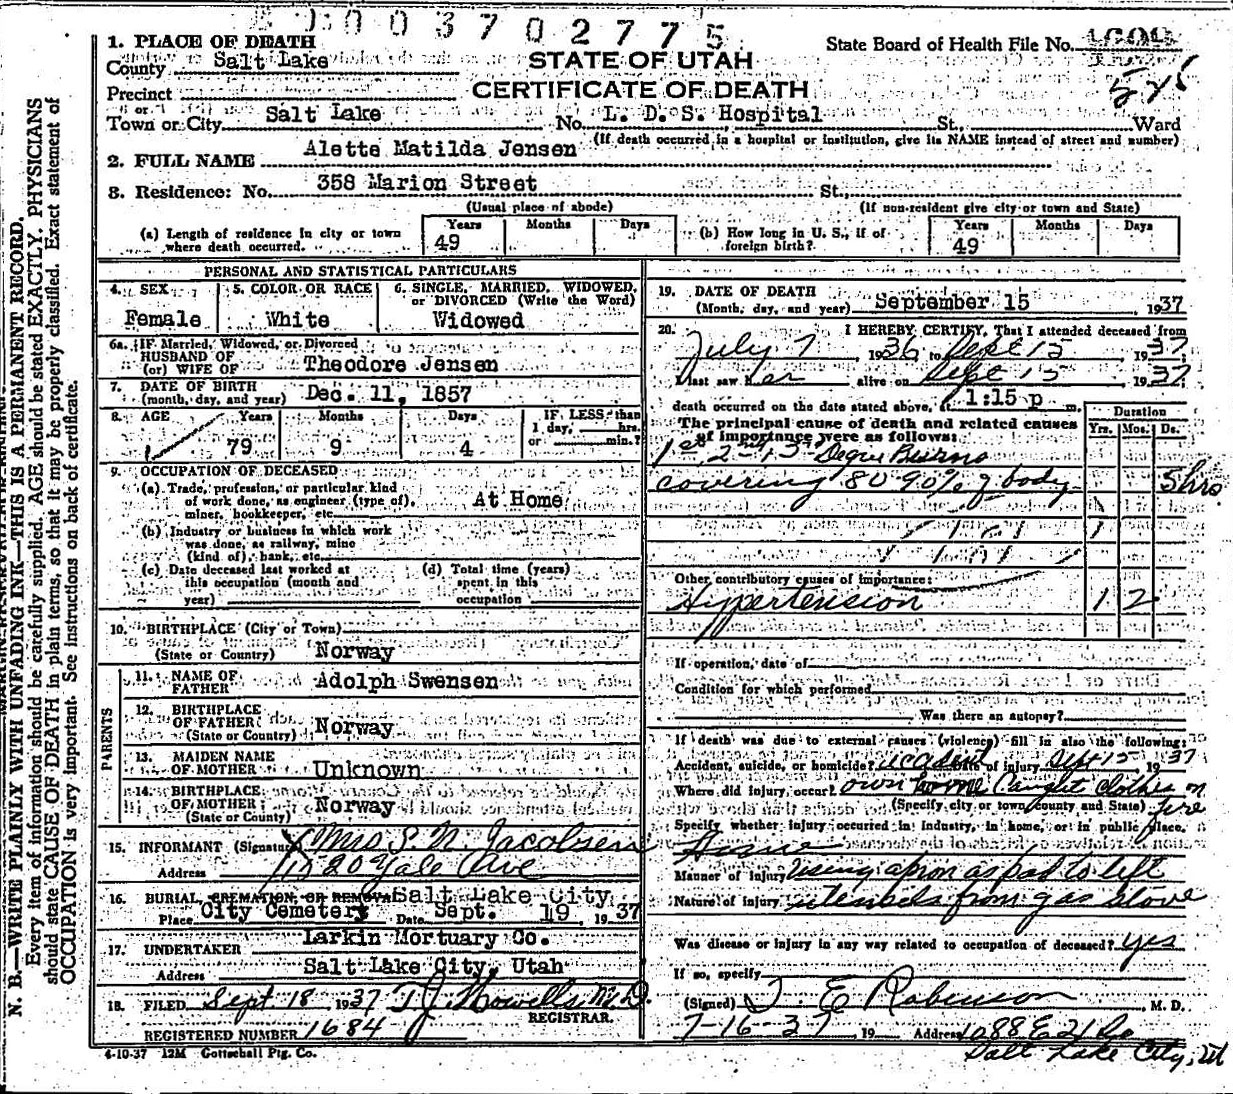 003702775
1. PLACE OF DEATH
State Board of Health File No.
County Salt Lake
STATE OF UTAH
Precinct
CERTIFICATE OF DEATH
525
or
Town or City Salt Lake No. L. D. S. Hospital St., Ward
(If death occurred in a hospital or institution, give its NAME instead of street and number)
2. FULL NAME Alette Matilda Jensen
3. Residence: No. 358 Marion Street St.,
(Usual place of abode) (If non-resident give city or town and State)
(a) Length of residence in city or town where death occurred. Years 49 Months Days
(b) How long in U. S., if of foreign birth? Years 49 Months Days
N. B.—WRITE PLAINLY WITH UNFADING INK—THIS IS A PERMANENT RECORD.
Every item of information should be carefully supplied. AGE should be stated EXACTLY. PHYSICIANS
should state CAUSE OF DEATH in plain terms, so that it may be properly classified. Exact statement of
OCCUPATION is very important. See instructions on back of certificate.
PERSONAL AND STATISTICAL PARTICULARS
4. SEX Female
5. COLOR OR RACE White
6. SINGLE, MARRIED, WIDOWED, or DIVORCED (Write the Word) Widowed
6a. IF Married, Widowed, or Divorced
HUSBAND OF
(or) WIFE OF Theodore Jensen
7. DATE OF BIRTH
(month, day, and year) Dec. 11, 1857
8. AGE Years 79 Months 9 Days 4 IF LESS than 1 day, hrs. or min.?
9. OCCUPATION OF DECEASED
(a) Trade, profession, or particular kind
of work done, as engineer (type of), At Home
miner, bookkeeper, etc.
(b) Industry or business in which work
was done, as railway, mine
(kind of), bank, etc.
(c) Date deceased last worked at
this occupation (month and
year)
(d) Total time (years)
spent in this
occupation
10. BIRTHPLACE (City or Town)
(State or Country) Norway
PARENTS
11. NAME OF
FATHER Adolph Swensen
12. BIRTHPLACE
OF FATHER
(State or Country) Norway
13. MAIDEN NAME
OF MOTHER Unknown
14. BIRTHPLACE
OF MOTHER Norway
(State or County)
15. INFORMANT (Signature) Mrs S. N. Jacobsen
Address 1720 Yale Ave
16. BURIAL, CREMATION, OR REMOVAL Salt Lake City
Place City Cemetery Date Sept. 19 1937
17. UNDERTAKER Larkin Mortuary Co.
Address Salt Lake City, Utah
18. FILED Sept 18 1937 T J Howells M. D.
REGISTRAR.
REGISTERED NUMBER 1684
4-10-37 12M Gottschall Ptg. Co.
19. DATE OF DEATH
(Month, day, and year) September 15 1937
20. I HEREBY CERTIFY, That I attended deceased from
July 7, 1936 to Sept 15 1937
I last saw her alive on Sept 15 1937
death occurred on the date stated above, at 1:15 p m.
The principal cause of death and related causes
of importance were as follows:
Duration
Yrs. Mos. Ds.
1st, 2nd, 3rd Degree Burns
covering 80-90% of body 5 hrs
Other contributory causes of importance:
Hypertension 1 2
If operation, date of
Condition for which performed
Was there an autopsy?
If death was due to external causes (violence) fill in also the following:
Accident, suicide, or homicide? accident Date of injury Sept 15 1937
Where did injury occur? own home Caught clothes on fire
(Specify city or town, county and State)
Specify whether injury occurred in industry, in home, or in public place.
Home
Manner of injury Using apron as pad to lift
Nature of injury utensils from gas stove
Was disease or injury in any way related to occupation of deceased? yes
If so, specify
(Signed) T. E. Robinson, M. D.
7-16-37 19 Address 1088 E 21 So
Salt Lake City, Ut